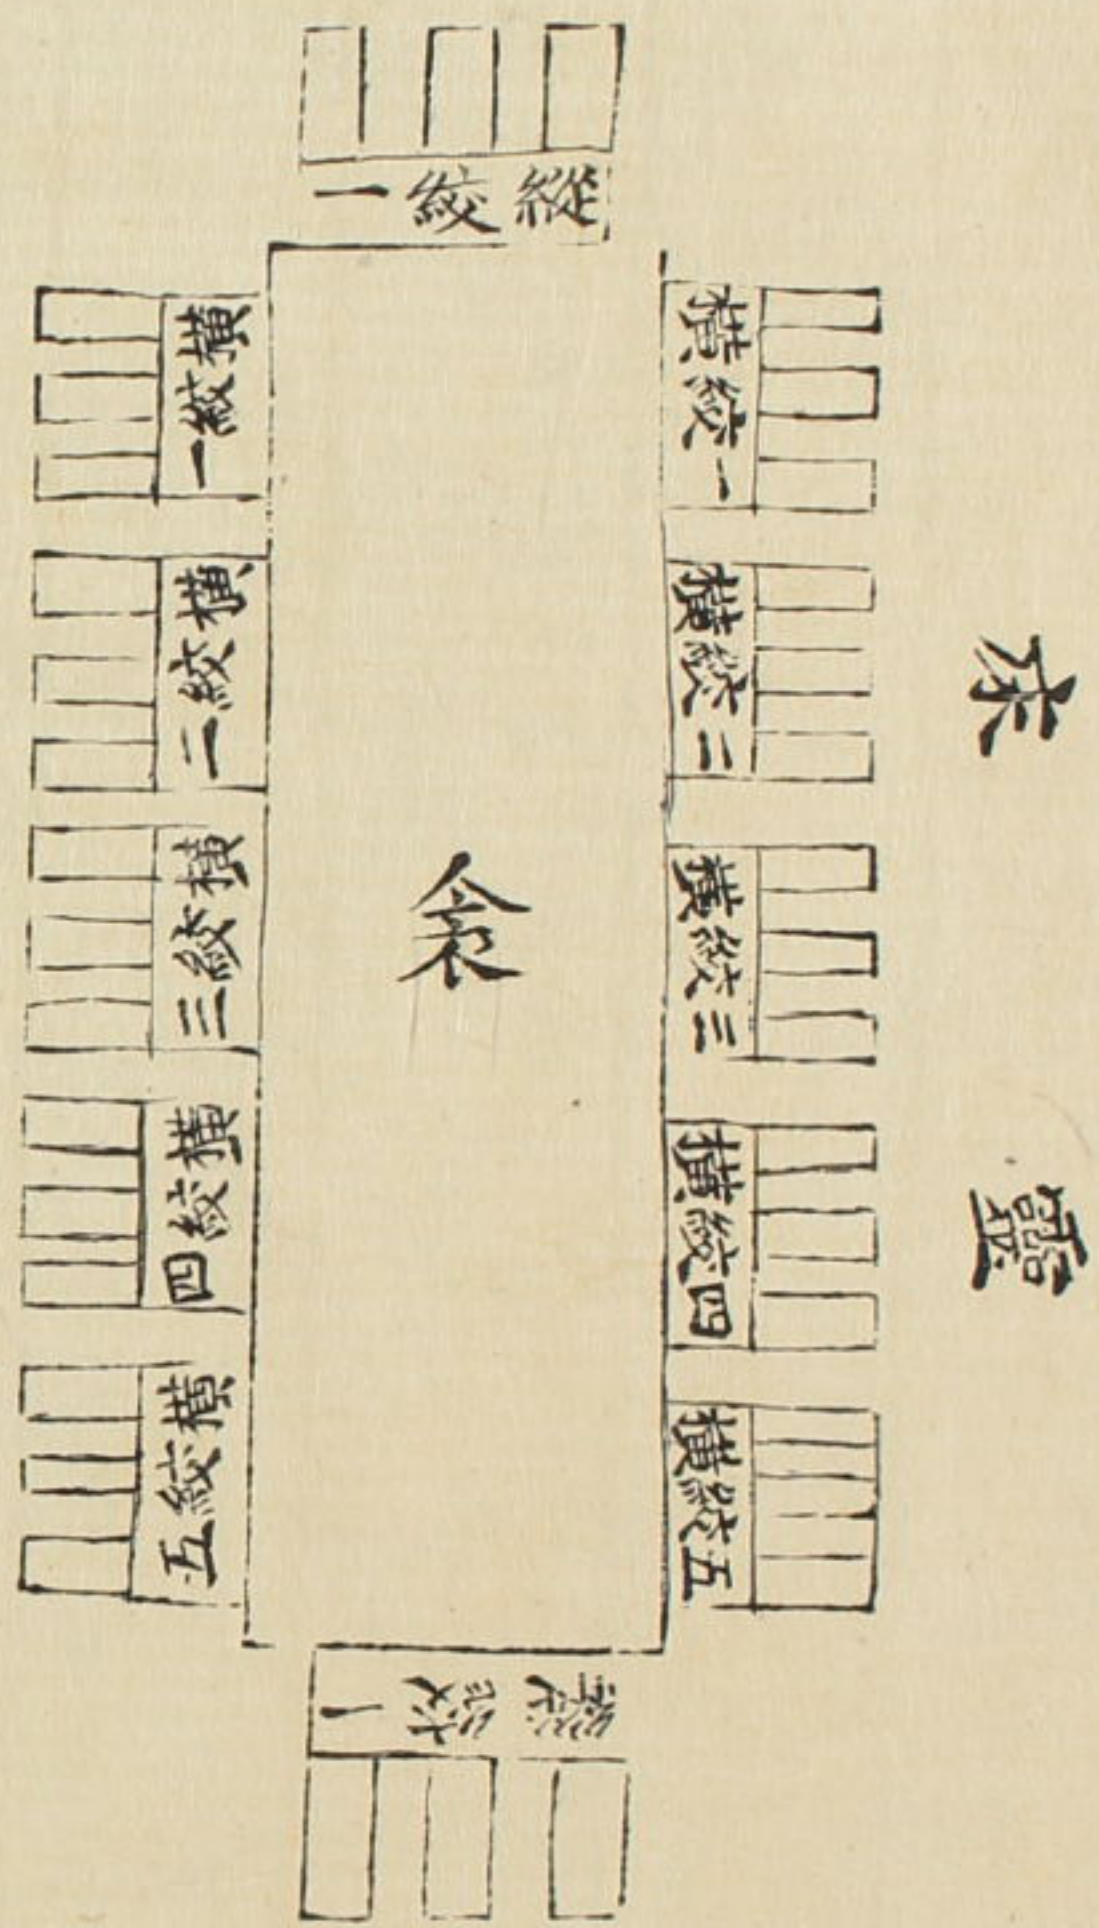 靈床
縱絞一
橫絞一
橫絞二
橫絞三
橫絞四
橫絞五
衾
橫絞一
橫絞二
橫絞三
橫絞四
橫絞五
縱絞一